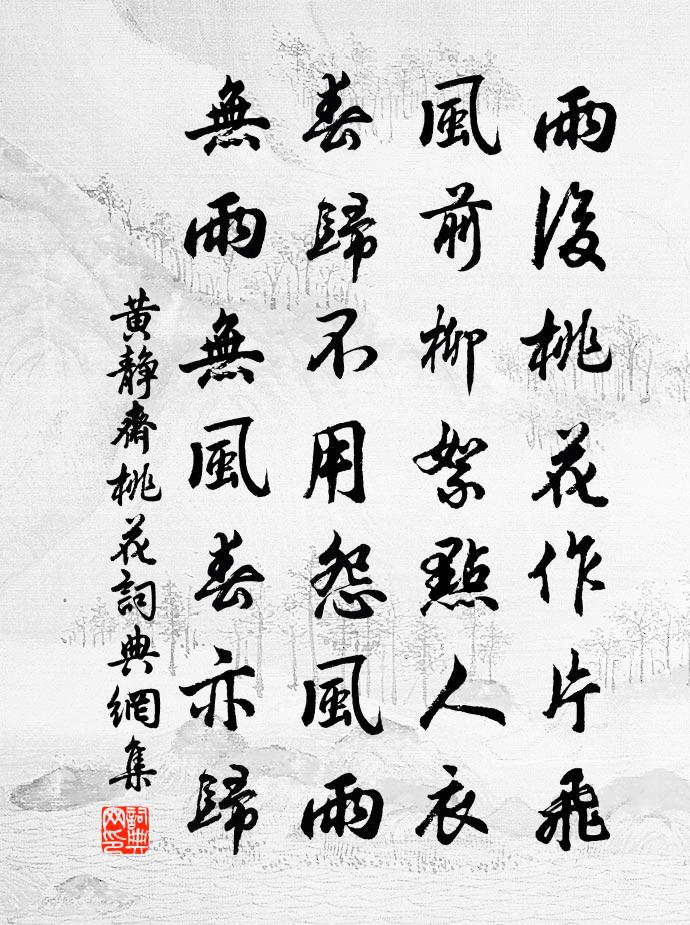 雨後桃花作片飛
風前柳絮點人衣
春歸不用怨風雨
無雨無風春亦歸
黃靜齋桃花詞典網集
詞典網印